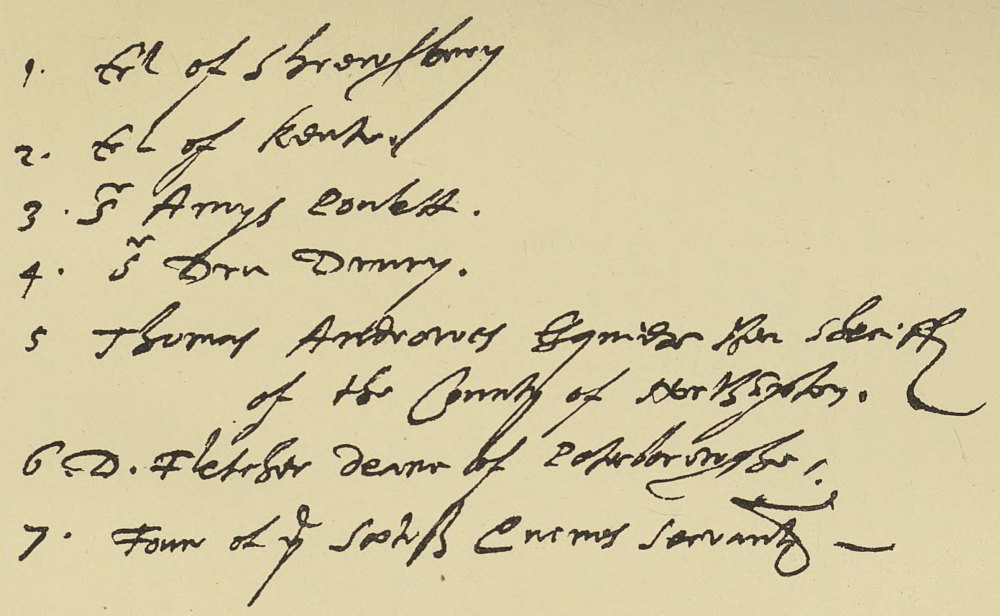 1. Erl of Shrewsbury
2. Erl of Kente.
3. Sr Amys Poulett.
4. Sr Dru Drury.
5 Thomas Androwes Esquier then Sheriff
of the County of Northampton.
6 D. Fletcher deane of Peterboroughe.
7. Four of ye Scotish Quenes servants